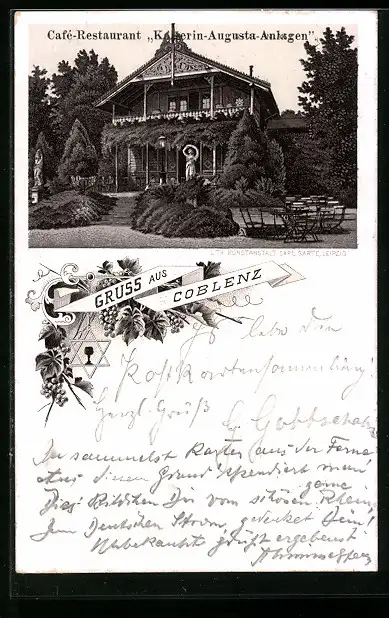 Café-Restaurant „Kaiserin-Augusta-Anlagen"
LITH. KUNSTANSTALT CARL GARTE, LEIPZIG
GRUSS AUS
COBLENZ
Es lebe die
Postkartensammlung!
Herzl. Gruß
Du sammelst Karten aus der Ferne
Aus diesem Grund spendiert man gerne
Dies Bildchen Dir vom schönen Rhein,
Dem Deutschen Strom,
Unbekannt grüßt ergebenst